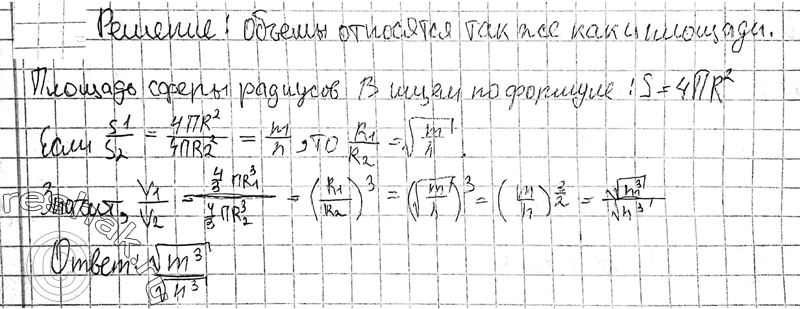 Решение: Объемы относятся так же как и площади.
Площадь сферы радиусов R ищем по формуле: S = 4ПR²
Если S1/S2 = 4ПR²/4ПR2² = m/n, то R1/R2 = √(m/n).
Значит, V1/V2 = (4/3 ПR1³)/(4/3 ПR2³) = (R1/R2)³ = (√(m/n))³ = (m/n)^(3/2) = √m³/√n³
Ответ: √m³/√n³